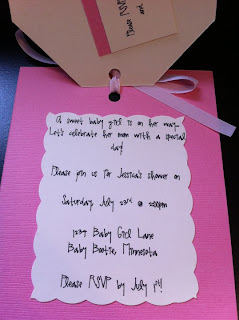 Please RSVP
and
A sweet baby girl is on her way.
Let's celebrate her mom with a special
day!
Please join us for Jessica's shower on
Saturday, July 23rd @ 2:00pm
1234 Baby Girl Lane
Baby Bootie, Minnesota
Please RSVP by July